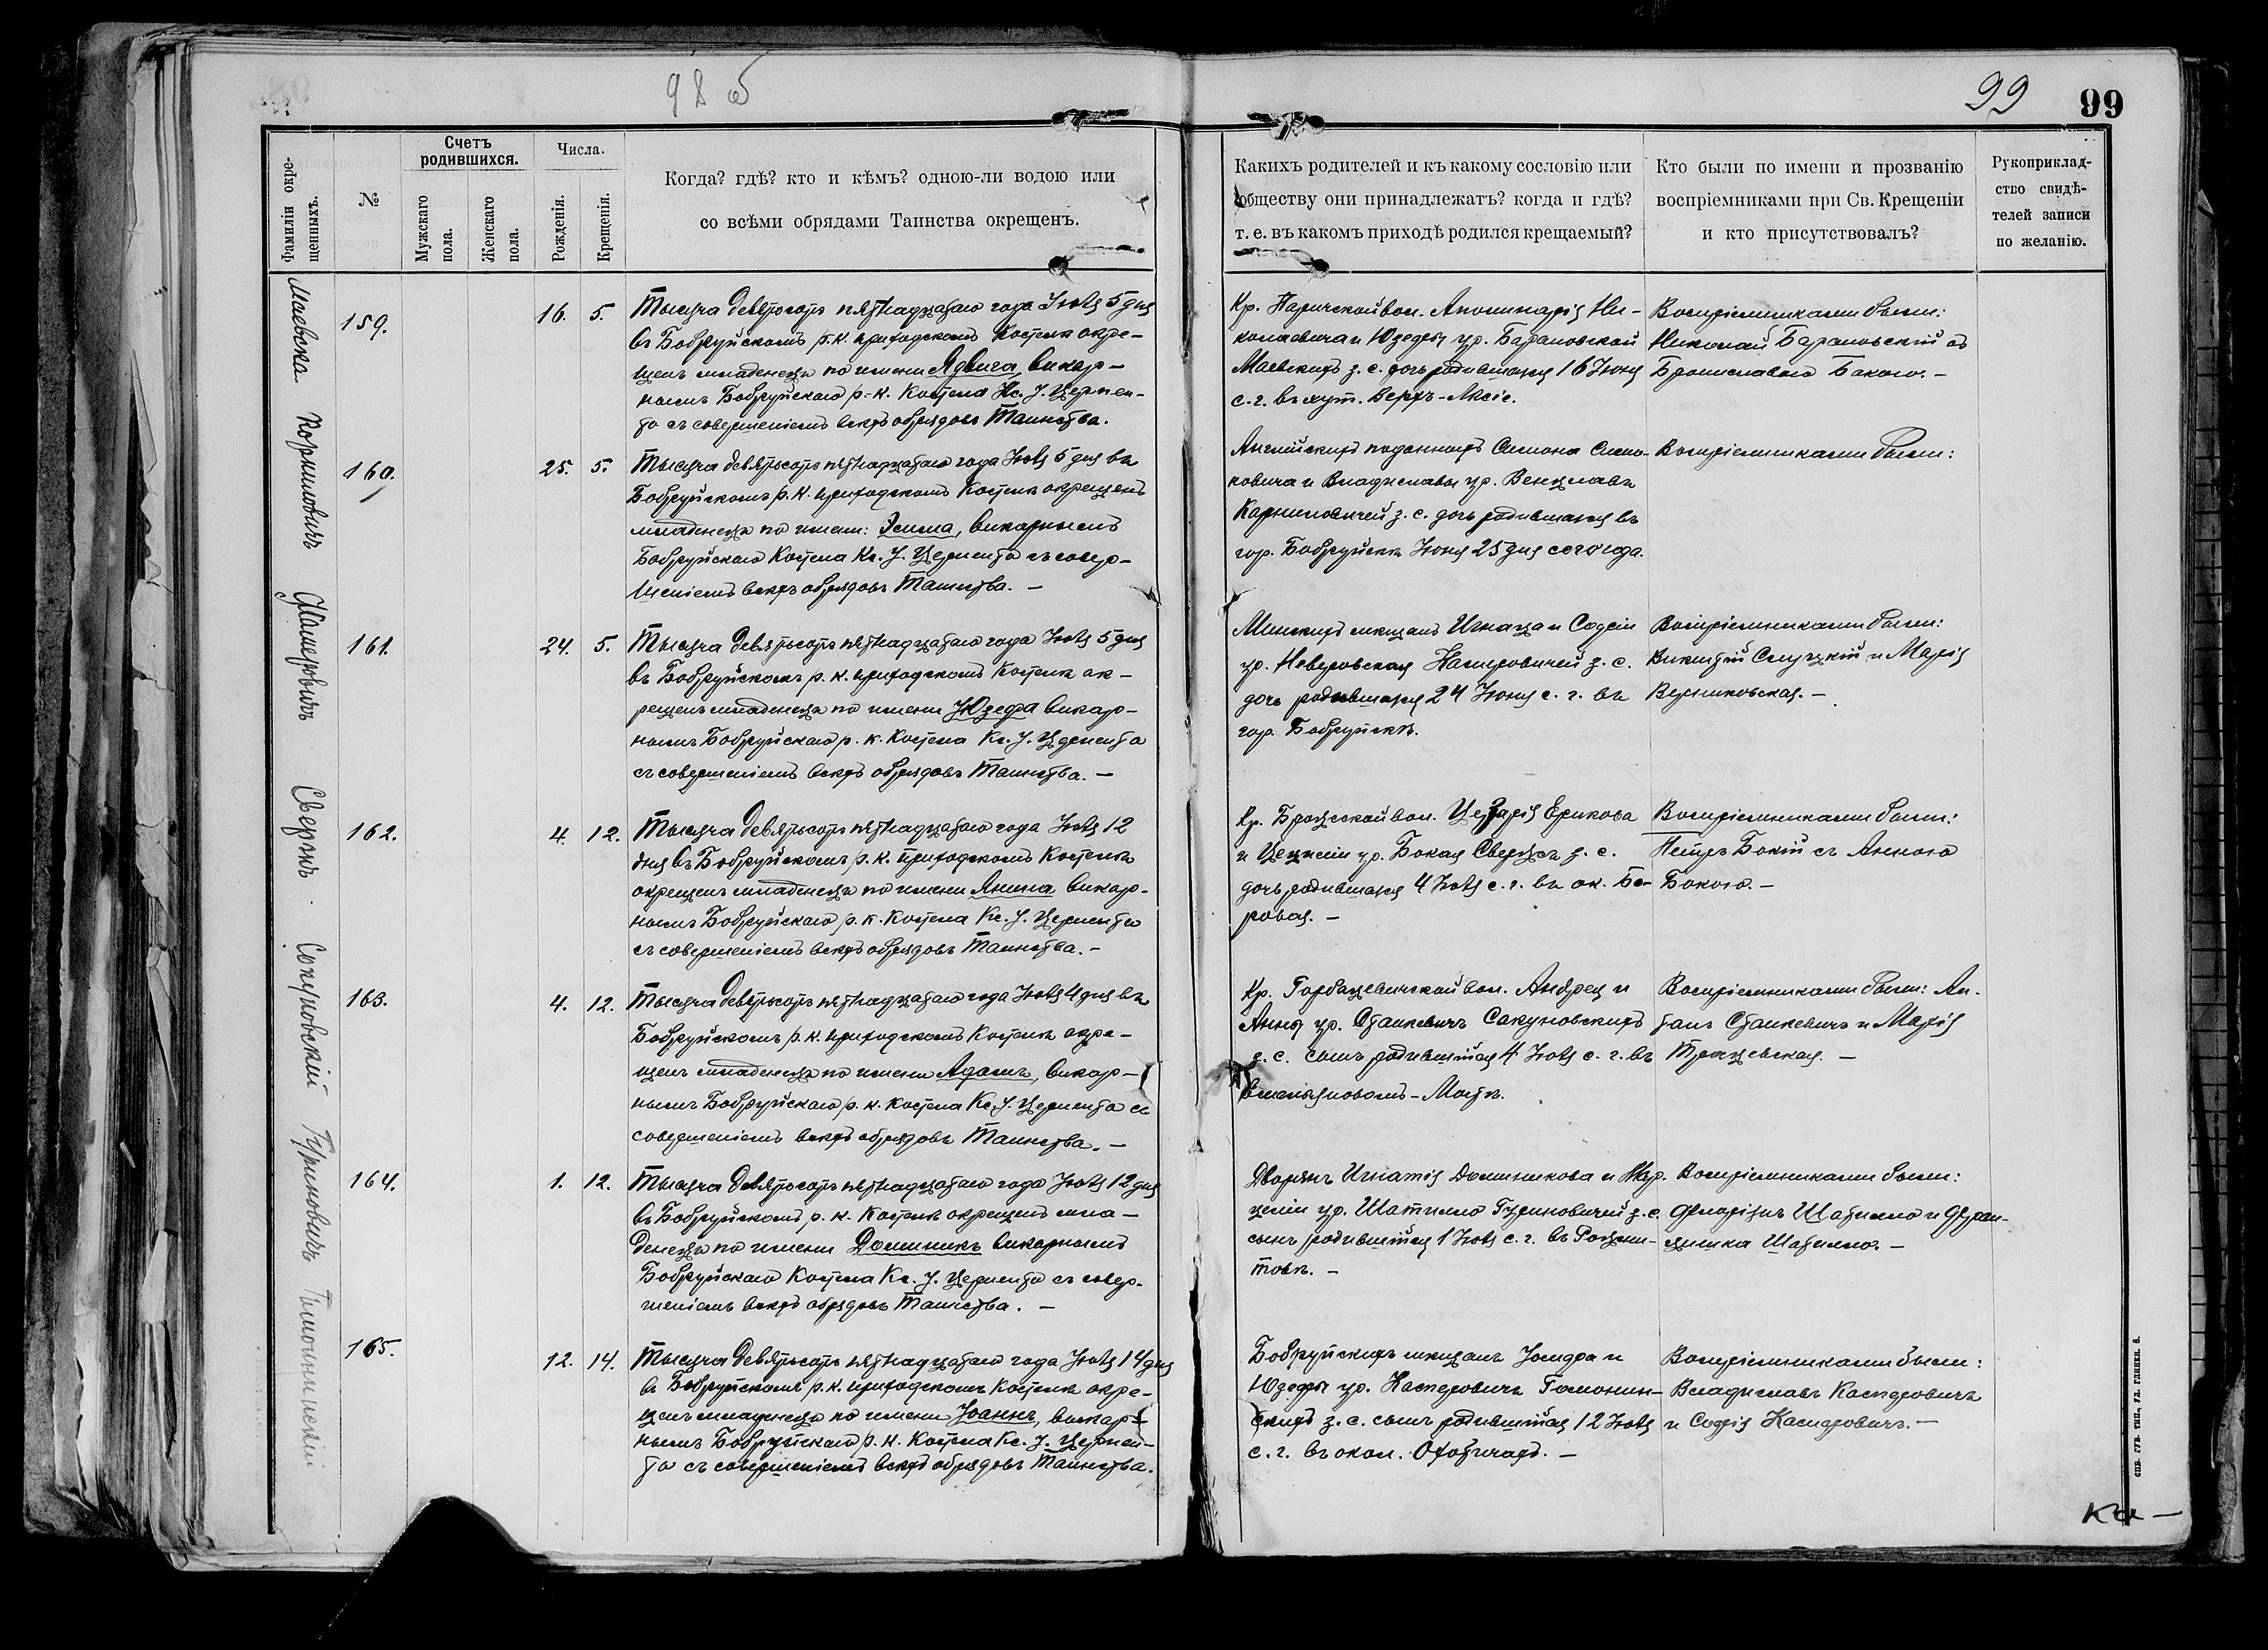 98 об
99
99
Фамиліи окре-
щенныхъ.
№
Счетъ
родившихся.
Мужскаго
пола.
Женскаго
пола.
Числа.
Рожденія.
Крещенія.
Когда? гдѣ? кто и кѣмъ? одною-ли водою или
со всѣми обрядами Таинства окрещенъ.
Какихъ родителей и къ какому сословію или
обществу они принадлежатъ? когда и гдѣ?
т. е. въ какомъ приходѣ родился крещаемый?
Кто были по имени и прозванію
воспріемниками при Св. Крещеніи
и кто присутствовалъ?
Рукоприклад-
ство свидѣ-
телей записи
по желанію.
Маевска
159.
16. 5.
Тысяча девятьсотъ пятнадцатаго года Іюля 5 дня
въ Бобруйскомъ р.к. приходскомъ Костелѣ окре-
щенъ младенецъ по имени Ядвига, викар-
нымъ Бобруйскаго р.-к. Костела Кс. І.
съ совершеніемъ всѣхъ обрядовъ Таинства.
Кр. Паричской вол. Аполинарія Ни-
колаевича и Юзефы ур. Барановской
Маевскихъ з. с. дочь родившаяся 16 Іюня
с. г. въ
Воспріемниками были:
Николай Барановскій съ
Брониславою Бакою. -
Корниловичъ
160.
25. 5.
Тысяча девятьсотъ пятнадцатаго года Іюля 5 дня въ
Бобруйскомъ р.к. приходскомъ Костелѣ окрещенъ
младенецъ по имени: викарнымъ
Бобруйскаго Костела Кс. І. съ совер-
шеніемъ всѣхъ обрядовъ Таинства. -
Англійскихъ подданныхъ Симона Симо-
новича и Владиславы ур. Венцлавъ
з. с. дочь родившаяся въ
гор. Бобруйскѣ Іюня 25 дня сего года.
Воспріемниками были:
161.
24. 5.
Тысяча девятьсотъ пятнадцатаго года Іюля 5 дня
въ Бобруйскомъ р. к. приходскомъ Костелѣ ок-
рещенъ младенецъ по имени Юзефа викар-
нымъ Бобруйскаго р. к. Костела Кс. І.
съ совершеніемъ всѣхъ обрядовъ Таинства. -
Минскихъ мѣщанъ Игнаца и Софіи
ур. Неверовская з. с.
дочь родившаяся 24 Іюня с. г. въ
гор. Бобруйскѣ.
Воспріемниками были:
Викентій Слуцкій и Марія
162.
4. 12.
Тысяча девятьсотъ пятнадцатаго года Іюля 12
дня въ Бобруйскомъ р. к. приходскомъ Костелѣ
окрещенъ младенецъ по имени Янина викар-
нымъ Бобруйскаго р. к. Костела Кс. І.
съ совершеніемъ всѣхъ обрядовъ Таинства. -
Кр. Брожской вол. Цезарія Ерикова
и ур. Бокая з. с.
дочь родившаяся 4 Іюля с. г. въ ок. Бо-
ровая. -
Воспріемниками были:
Петръ Бокій съ Анною
Бокою. -
163.
4. 12.
Тысяча девятьсотъ пятнадцатаго года Іюля 4 дня въ
Бобруйскомъ р.к. приходскомъ Костелѣ окре-
щенъ младенецъ по имени Адамъ, викар-
нымъ Бобруйскаго р. к. Костела Кс. І. съ
совершеніемъ всѣхъ обрядовъ Таинства. -
Кр. Горбацевичской вол. Андрея и
Анны ур. Станкевичъ Сакуновскихъ
з. с. сынъ родившійся 4 Іюля с. г. въ
Емельяновомъ-Мостѣ.
Воспріемниками были: Ан-
тонъ Станкевичъ и Марія
Гриновичъ
164.
1. 12.
Тысяча девятьсотъ пятнадцатаго года Іюля 12 дня
въ Бобруйскомъ р. к. Костелѣ окрещенъ мла-
денецъ по имени Доминикъ викарнымъ
Бобруйскаго Костела Кс. І. съ совер-
шеніемъ всѣхъ обрядовъ Таинства. -
Дворянъ Игнатія Доминикова и
ур. Шатилло Гриновичей з. с.
сынъ родившійся 1 Іюля с. г. въ
Воспріемниками были:
Флоріанъ Шатилло и Фран-
цишка Шатилло. -
165.
12. 14.
Тысяча девятьсотъ пятнадцатаго года Іюля 14 дня
въ Бобруйскомъ р.к. приходскомъ Костелѣ окре-
щенъ младенецъ по имени Іоаннъ, викар-
нымъ Бобруйскаго р. к. Костела Кс. І.
съ совершеніемъ всѣхъ обрядовъ Таинства.
Бобруйскихъ мѣщанъ и
Юзефы ур. Касперовичъ
з. с. сынъ родившійся 12 Іюля
с. г. въ окол. Охотичахъ. -
Воспріемниками были:
Владиславъ Касперовичъ
и Софія Касперовичъ. -
СПБ. ГУБ. ТИП., УЛ. ГЛИНКИ, 8.